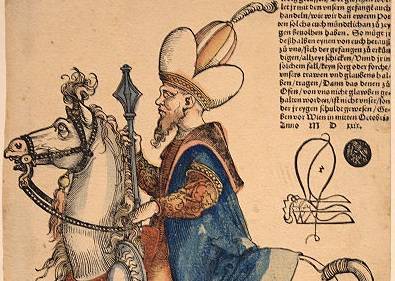 let jr mit den unsern gefangē auch
handeln/ wie wir dan ewern Poten
solchs euch mündtlichen zu zey
gen bevolhen haben. So mügt jr
deßhalben eynen von euch herauß
zu vns/sich der gefangen zu erkün
digen/ allzeyt schicken/ Vnnd jr in
solchem fall/ keyn sorg oder forchte/
vnsers trawen vnd glaubens ha
ben/tragen/ Dann das denen zů
Ofen/ von vns nicht glawben ge
halten worden/ist nicht vnser/son
der jr eygen schuldt gewesen/ Ge
ben vor Wien in mitten Octobris
Anno M D xxix.